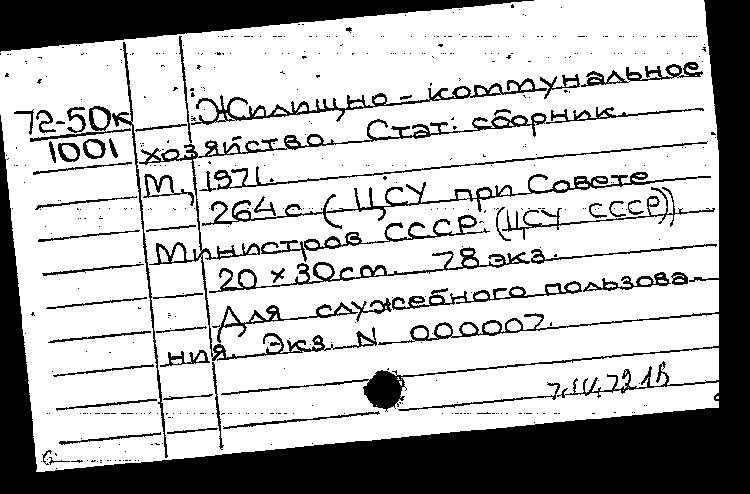 72-50к
1001
Жилищно-коммунальное
хозяйство. Стат. сборник.
М., 1971.
264 с. (ЦСУ при Совете
Министров СССР. (ЦСУ СССР)).
20 × 30 cm. 78 экз.
Для служебного пользова-
ния. Экз. N. 000007.
7.IV.72